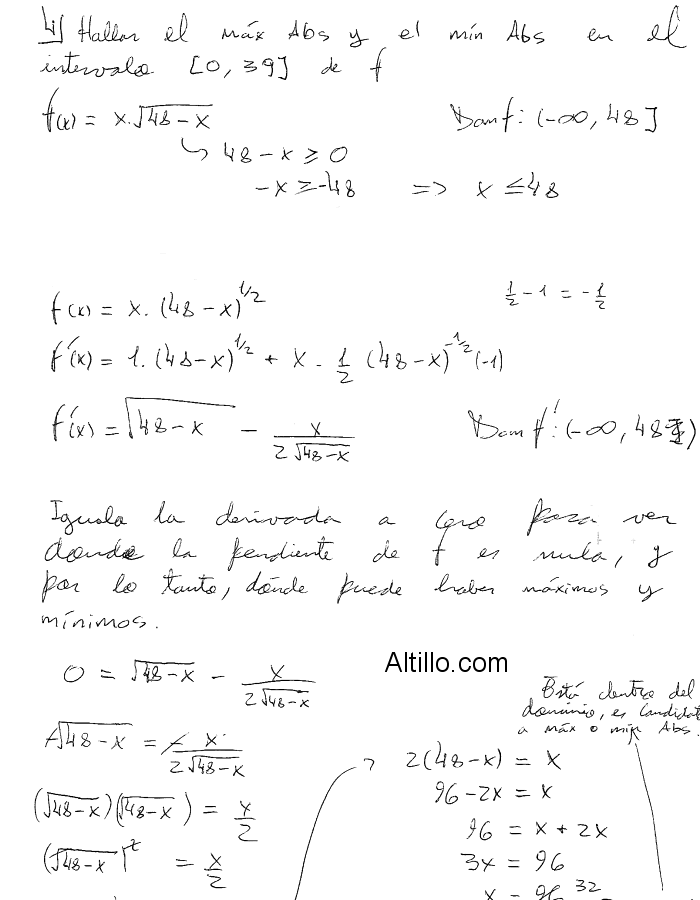 4) Hallar el máx Abs y el mín Abs en el
intervalo [0, 39] de f
f(x) = x.√(48-x)    Dom f: (-∞, 48]
↳ 48-x ≥ 0
-x ≥ -48 => x ≤ 48
f(x) = x. (48-x)^(1/2)    1/2 - 1 = -1/2
f'(x) = 1. (48-x)^(1/2) + x . 1/2 (48-x)^(-1/2) (-1)
f'(x) = √(48-x) - x/(2√(48-x))    Dom f': (-∞, 48)
Igualo la derivada a cero para ver
donde la pendiente de f es nula, y
por lo tanto, dónde puede haber máximos y
mínimos.
Altillo.com
0 = √(48-x) - x/(2√(48-x))
-√(48-x) = - x/(2√(48-x))
(√(48-x))(√(48-x)) = x/2
(√(48-x))² = x/2
Está dentro del
dominio, es candidat
a máx o mín Abs.
2(48-x) = x
96-2x = x
96 = x + 2x
3x = 96
x = 96 32